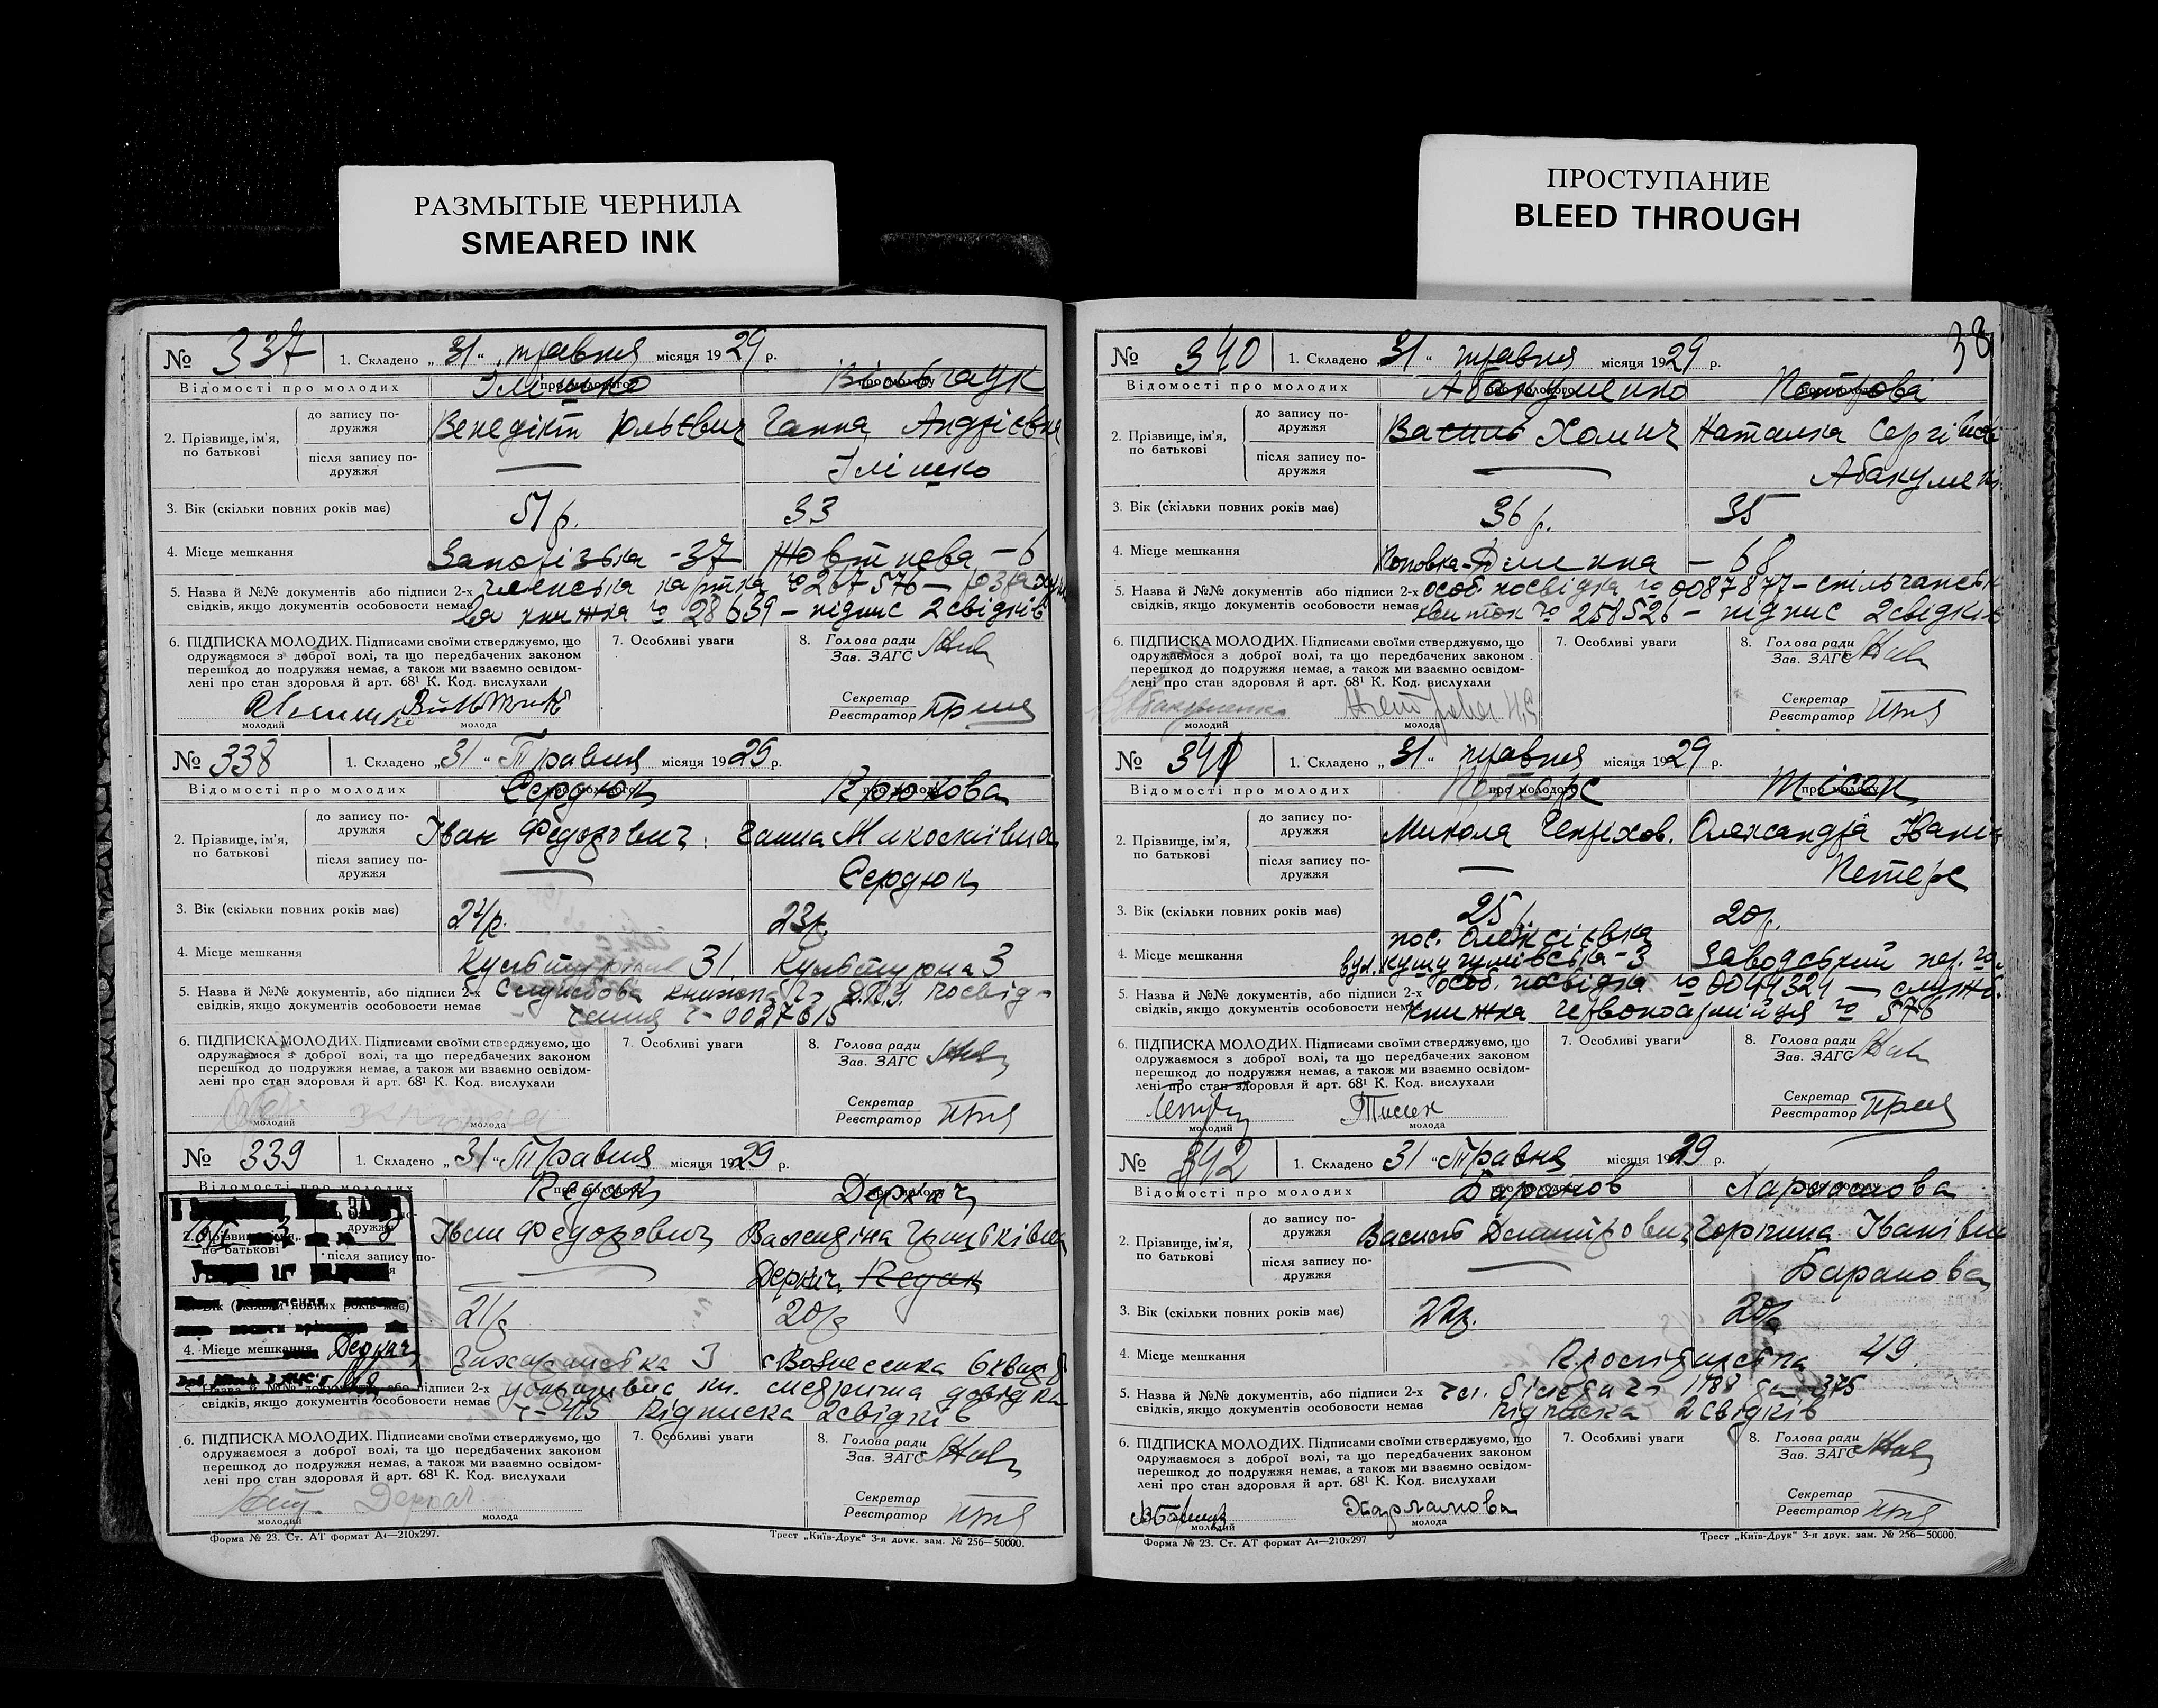 РАЗМЫТЫЕ ЧЕРНИЛА
SMEARED INK
ПРОСТУПАНИЕ
BLEED THROUGH
№ 337 1. Складено „31“ травня місяця 1929 р.
Відомості про молодих про молодого про молоду
Ілішко
2. Прізвище, ім'я, по батькові
до запису подружжя
Венедікт Юльєвич Ганна Андрієвна
після запису подружжя
— Ілішко
3. Вік (скільки повних років має) 51 р. 33
4. Місце мешкання Запорізька - 37 Жовтнева - 6
5. Назва й №№ документів або підписи 2-х членська картка № 267576 —
свідків, якщо документів особовости немає книжка № 28639 – підпис 2 свідків
6. ПІДПИСКА МОЛОДИХ. Підписами своїми стверджуємо, що
одружаємося з доброї волі, та що передбачених законом
перешкод до подружжя немає, а також ми взаємно освідом-
лені про стан здоровля й арт. 68¹ К. Код. вислухали
молодий молода
7. Особливі уваги
8. Голова ради
Зав. ЗАГС
Секретар
Реєстратор
№ 338 1. Складено „31“ Травня місяця 1929 р.
Відомості про молодих про молодого про молоду
Сердюк Крюкова
2. Прізвище, ім'я, по батькові
до запису подружжя
Іван Федорович Ганна Миколаївна
після запису подружжя
— Сердюк
3. Вік (скільки повних років має) 24 р. 23 р.
4. Місце мешкання Культурная 31. Культурна 3
5. Назва й №№ документів, або підписи 2-х Службова книжка Д.П.У. посвід-
свідків, якщо документів особовости немає чення ч- 0027615
6. ПІДПИСКА МОЛОДИХ. Підписами своїми стверджуємо, що
одружаємося з доброї волі, та що передбачених законом
перешкод до подружжя немає, а також ми взаємно освідом-
лені про стан здоровля й арт. 68¹ К. Код. вислухали
молодий молода
7. Особливі уваги
8. Голова ради
Зав. ЗАГС
Секретар
Реєстратор
№ 339 1. Складено „31“ Травня місяця 1929 р.
Відомості про молодих
Редак Деркач
2. Прізвище, по батькові
дружжя
Іван Федорович Валендіна
після запису по-
— Деркач Редак
3. Вік (скільки повних років має) 21 р 20 р
4. Місце мешкання Деркач 3 с Вознесенка 6 квар 8
5. Назва й №№ документів, або підписи 2-х довідка
свідків, якщо документів особовости немає ч- 415 Підписка 2 свідків
6. ПІДПИСКА МОЛОДИХ. Підписами своїми стверджуємо, що
одружаємося з доброї волі, та що передбачених законом
перешкод до подружжя немає, а також ми взаємно освідом-
лені про стан здоровля й арт. 68¹ К. Код. вислухали
Деркач
молодий молода
7. Особливі уваги
8. Голова ради
Зав. ЗАГС
Секретар
Реєстратор
Форма № 23. Ст. АТ формат А₄—210x297. Трест „Київ-Друк“ 3-я друк. зам. № 256—50000.
38
№ 340 1. Складено 31“ травня місяця 1929 р.
Відомості про молодих
Абакуменко Петрова
2. Прізвище, ім'я, по батькові
до запису подружжя
Василь Хомич Наталка Сергіївна
після запису подружжя
— Абакумен
3. Вік (скільки повних років має) 36 р. 35
4. Місце мешкання – 68
5. Назва й №№ документів або підписи 2-х особ. посвідка № 0087877 – спільчанськ
свідків, якщо документів особовости немає квиток № 258526 – підпис 2 свідків
6. ПІДПИСКА МОЛОДИХ. Підписами своїми стверджуємо, що
одружаємося з доброї волі, та що передбачених законом
перешкод до подружжя немає, а також ми взаємно освідом-
лені про стан здоровля й арт. 68¹ К. Код. вислухали
Абакуменко Петрова Н.С
молодий молода
7. Особливі уваги
8. Голова ради
Зав. ЗАГС
Секретар
Реєстратор
№ 341 1. Складено „31“ травня місяця 1929 р.
Відомості про молодих про молодого про молоду
Петерс Тісен
2. Прізвище, ім'я, по батькові
до запису подружжя
Микола Генріхов. Олександра Іванів
після запису подружжя
— Петерс
3. Вік (скільки повних років має) 25 р. 20 р.
пос. Олексіївка
4. Місце мешкання вул. Кушугумівська - 3 Заводський пер.
5. Назва й №№ документів, або підписи 2-х особ. посвідка № 0044324 — служб.
свідків, якщо документів особовости немає книжка червоноармійця № 576
6. ПІДПИСКА МОЛОДИХ. Підписами своїми стверджуємо, що
одружаємося з доброї волі, та що передбачених законом
перешкод до подружжя немає, а також ми взаємно освідом-
лені про стан здоровля й арт. 68¹ К. Код. вислухали
Тиссен
молодий молода
7. Особливі уваги
8. Голова ради
Зав. ЗАГС
Секретар
Реєстратор
№ 342 1. Складено 31 “Травня місяця 1929 р.
Відомості про молодих
Баранов Харламова
2. Прізвище, ім'я, по батькові
до запису подружжя
Василь Дмитрович Горпина Іванівна
після запису подружжя
— Баранова
3. Вік (скільки повних років має) 22 р. 20 р
4. Місце мешкання 49.
5. Назва й №№ документів або підписи 2-х чл. 1188 375
свідків, якщо документів особовости немає підписка 2 свідків
6. ПІДПИСКА МОЛОДИХ. Підписами своїми стверджуємо, що
одружаємося з доброї волі, та що передбачених законом
перешкод до подружжя немає, а також ми взаємно освідом-
лені про стан здоровля й арт. 68¹ К. Код. вислухали
Харламова
молодий молода
7. Особливі уваги
8. Голова ради
Зав. ЗАГС
Секретар
Реєстратор
Форма № 23. Ст. АТ формат А₄—210x297 Трест „Київ-Друк“ 3-я друк. зам. № 256—50000.